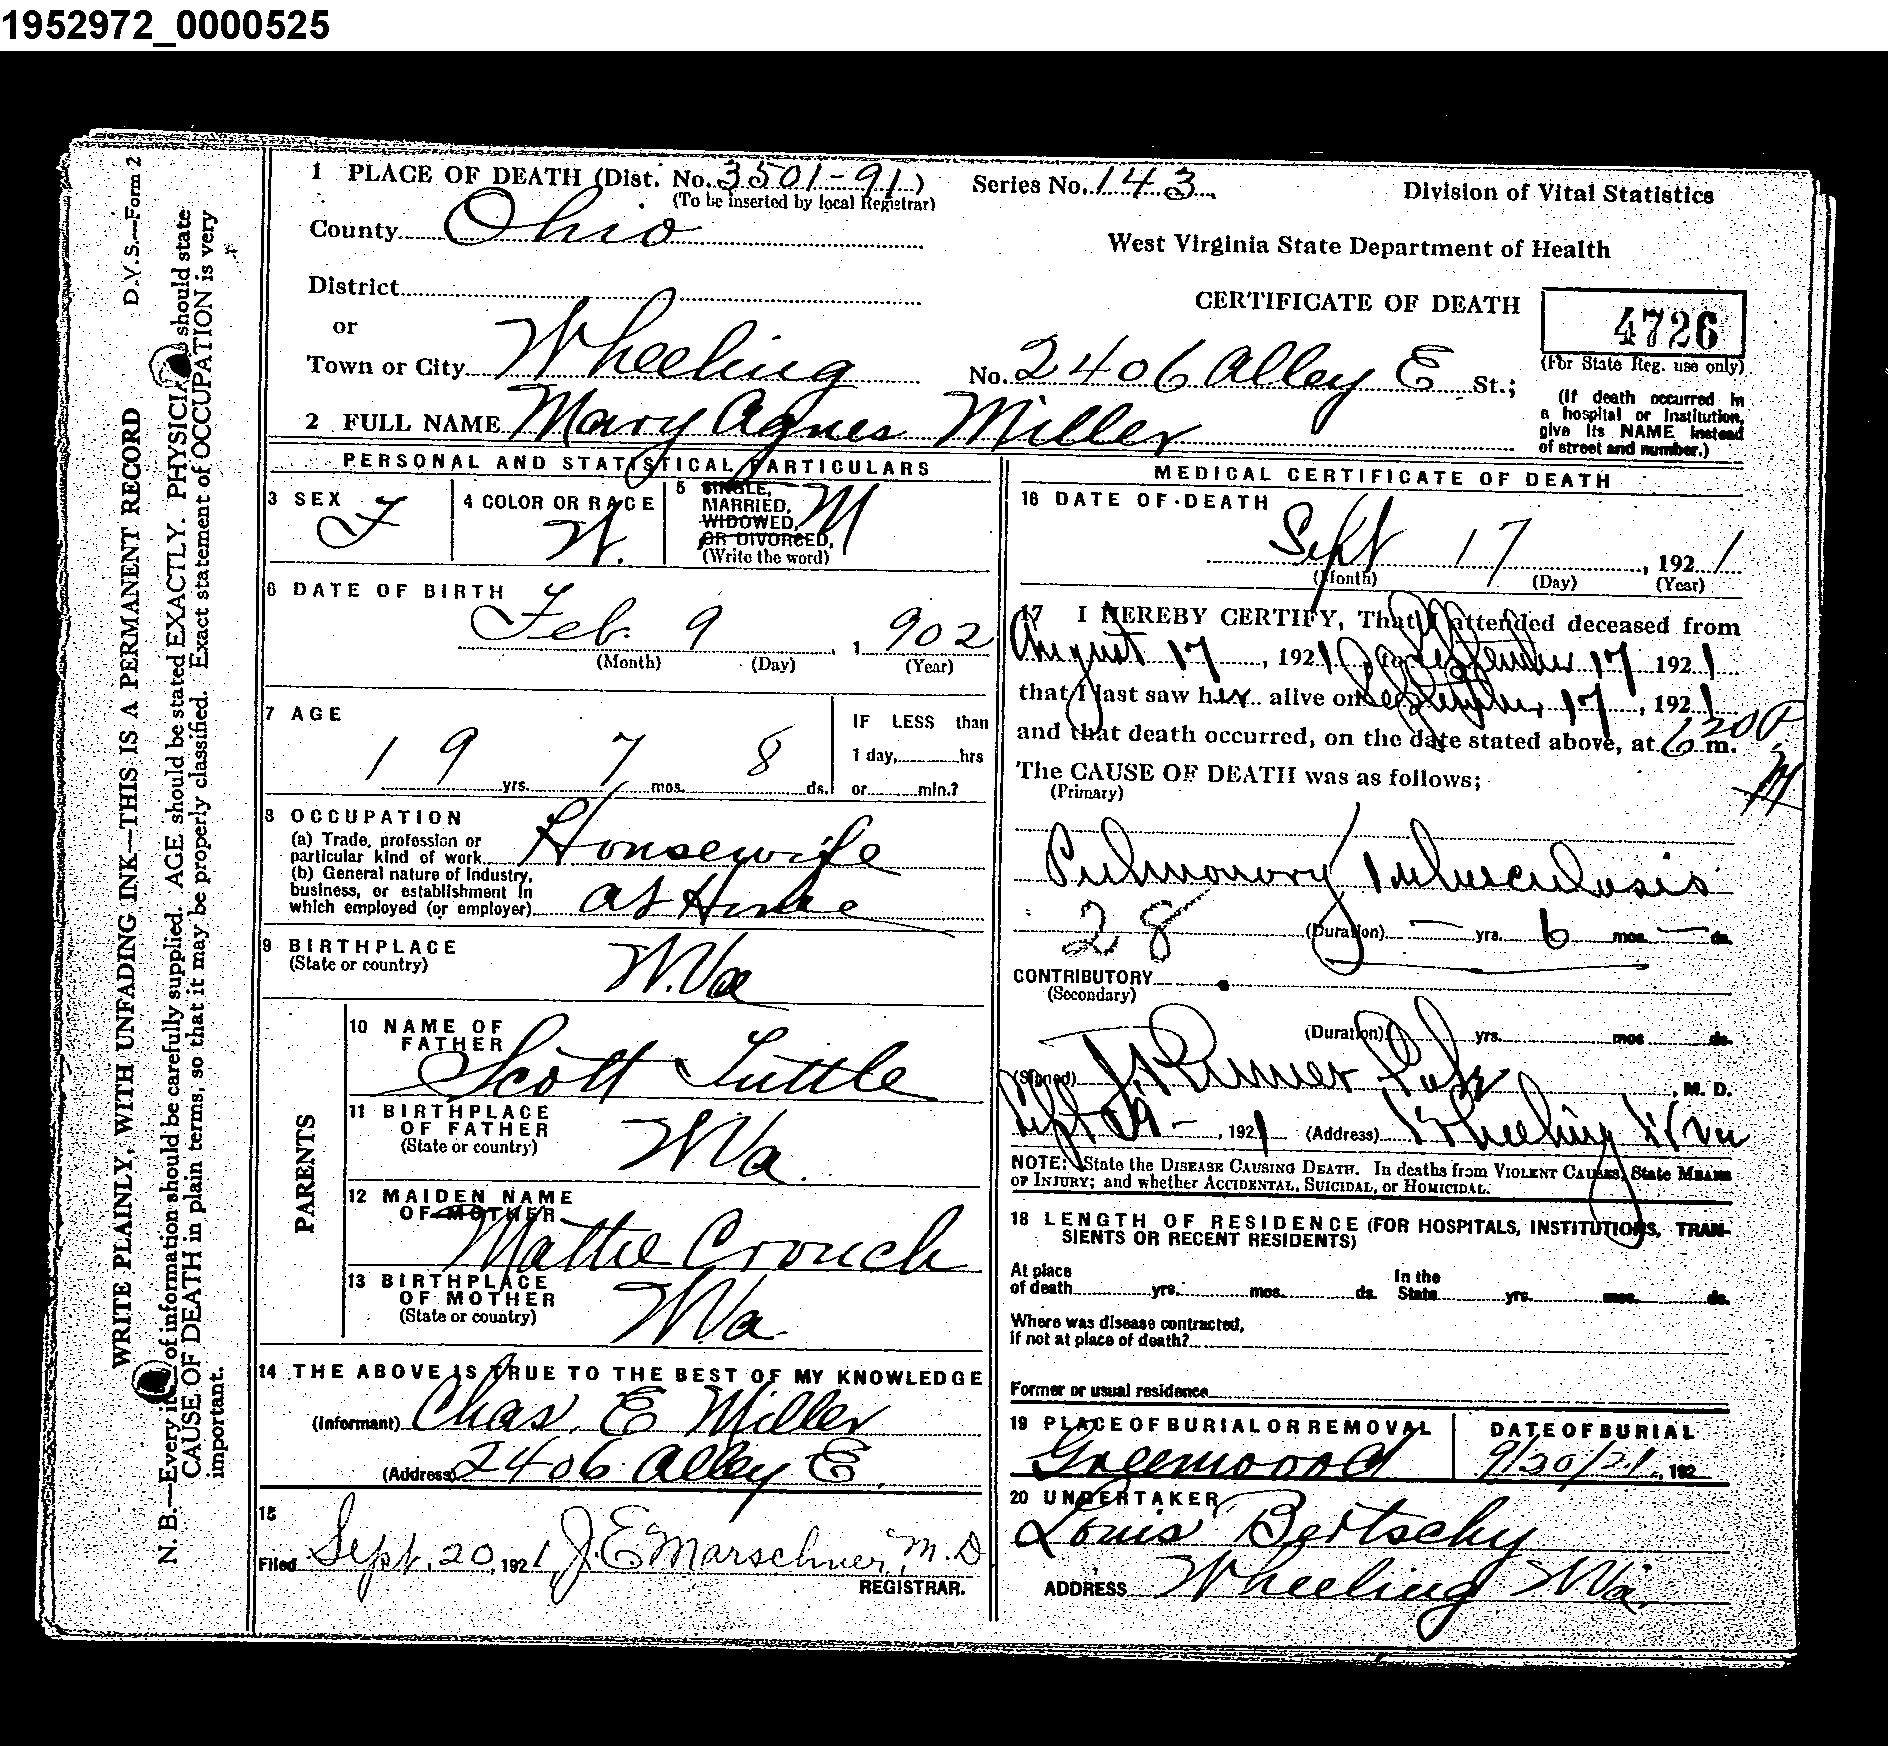 1952972_0000525
1 PLACE OF DEATH (Dist. No. 3501-91) Series No. 143 Division of Vital Statistics
(To be inserted by local Registrar)
County Ohio
West Virginia State Department of Health
District
CERTIFICATE OF DEATH 4726
or
(For State Reg. use only)
Town or City Wheeling No. 2406 Alley E St.;
(If death occurred in
a hospital or institution,
give its NAME instead
of street and number.)
2 FULL NAME Mary Agnes Miller
PERSONAL AND STATISTICAL PARTICULARS
3 SEX F
4 COLOR OR RACE W.
5 SINGLE,
MARRIED,
WIDOWED,
OR DIVORCED,
(Write the word) M
6 DATE OF BIRTH
Feb. 9, 1902
(Month) (Day) (Year)
7 AGE
19 yrs. 7 mos. 8 ds.
IF LESS than
1 day, hrs
or min.?
8 OCCUPATION
(a) Trade, profession or
particular kind of work Housewife
(b) General nature of Industry,
business, or establishment in
which employed (or employer) at Home
9 BIRTHPLACE
(State or country) W.Va
PARENTS
10 NAME OF
FATHER Scott Tuttle
11 BIRTHPLACE
OF FATHER
(State or country) W Va.
12 MAIDEN NAME
OF MOTHER
Mattie Crouch
13 BIRTHPLACE
OF MOTHER
(State or country) W.Va.
14 THE ABOVE IS TRUE TO THE BEST OF MY KNOWLEDGE
(Informant) Chas. E Miller
(Address) 2406 Alley E.
15
Filed Sept. 20, 1921, J. E. Marschner, M.D
REGISTRAR.
MEDICAL CERTIFICATE OF DEATH
16 DATE OF DEATH
Sept 17, 1921
(Month) (Day) (Year)
17 I HEREBY CERTIFY, That I attended deceased from
August 17, 1921, to September 17 1921
that I last saw her alive on September 17, 1921
and that death occurred, on the date stated above, at 6 20 P m.
M
The CAUSE OF DEATH was as follows;
(Primary)
Pulmonary Tuberculosis
28 (Duration) — yrs. 6 mos. — ds.
CONTRIBUTORY
(Secondary)
(Duration) yrs. mos. ds.
(Signed) , M. D.
Sept 19 -, 1921 (Address) Wheeling W Va
NOTE: State the DISEASE CAUSING DEATH. In deaths from VIOLENT CAUSES, State MEANS
OF INJURY; and whether ACCIDENTAL, SUICIDAL, or HOMICIDAL.
18 LENGTH OF RESIDENCE (FOR HOSPITALS, INSTITUTIONS, TRAN-
SIENTS OR RECENT RESIDENTS)
At place
of death yrs. mos. ds. In the
State yrs. mos. ds.
Where was disease contracted,
if not at place of death?
Former or usual residence
19 PLACE OF BURIAL OR REMOVAL
Greenwood
DATE OF BURIAL
9/20/21, 192
20 UNDERTAKER
Louis Bertschy
ADDRESS Wheeling W Va.
D.V.S.—Form 2
WRITE PLAINLY, WITH UNFADING INK—THIS IS A PERMANENT RECORD
N. B.—Every item of information should be carefully supplied. AGE should be stated EXACTLY. PHYSICIANS should state
CAUSE OF DEATH in plain terms, so that it may be properly classified. Exact statement of OCCUPATION is very
important.